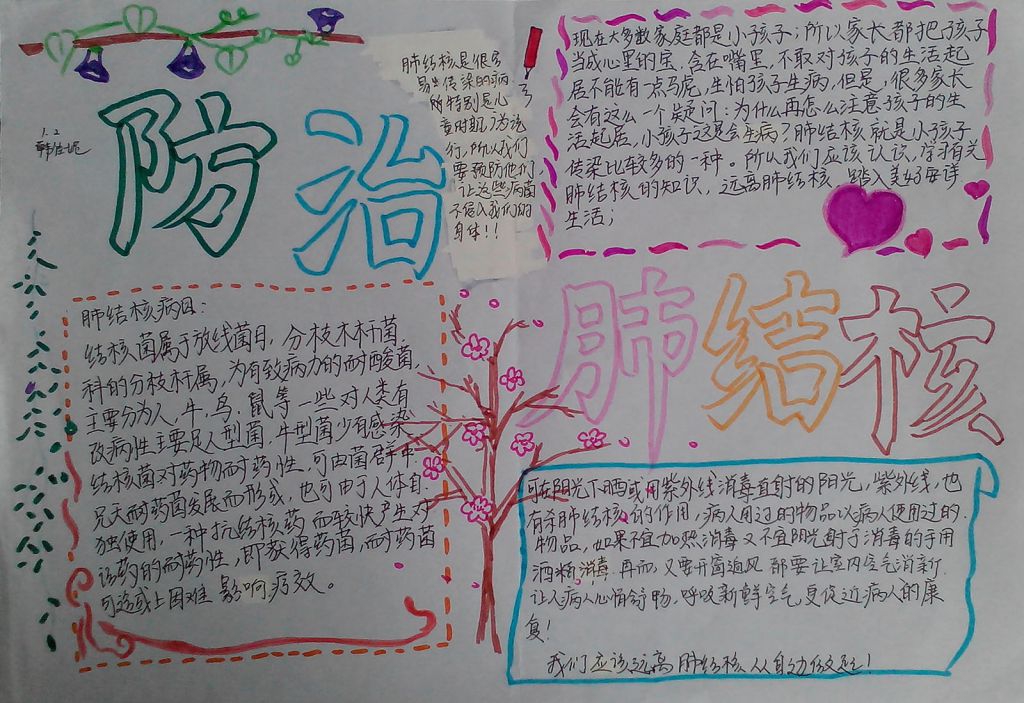 防治
1.2
肺结核是很容
易生传染的病
所特别是儿
童时期,为流
行,所以我们
要预防他们
让这些病菌
不侵入我们的
身体!!
现在大多数家庭都是小孩子;所以家长都把孩子
当成心里的宝,含在嘴里,不敢对孩子的生活起
居不能有一点马虎,生怕孩子生病,但是,很多家长
会有这么一个疑问:为什么再怎么注意孩子的生
活起居,小孩子这是会生病?肺结核就是小孩子
传染比较多的一种。所以我们应该认识,学习有关
肺结核的知识,远离肺结核,踏入美好安详
生活;
肺结核
肺结核病因:
结核菌属于放线菌目,分枝木杆菌
科的分枝杆属,为有致病力的耐酸菌,
主要分为人,牛,鸟,鼠等一些对人类有
改病性主要是人型菌,牛型菌少有感染
结核菌对药物耐药性,可由菌群中
先天耐药菌发展而形成,也可由于人体自
独使用,一种抗结核药而较快产生对
该药的耐药性,即获得药菌,耐药菌
可造成上困难影响疗效。
可在阳光下晒或用紫外线消毒直射的阳光,紫外线,也
有杀肺结核的作用,病人用过的物品以病人使用过的
物品,如果不宜加热消毒又不宜阳光射于消毒的手用
酒精消毒.再而,又要开窗通风都要让室内空气消新,
让人病人心情舒畅,呼吸新鲜空气,更促近病人的康
复!
我们应该远离肺结核从自边做起!